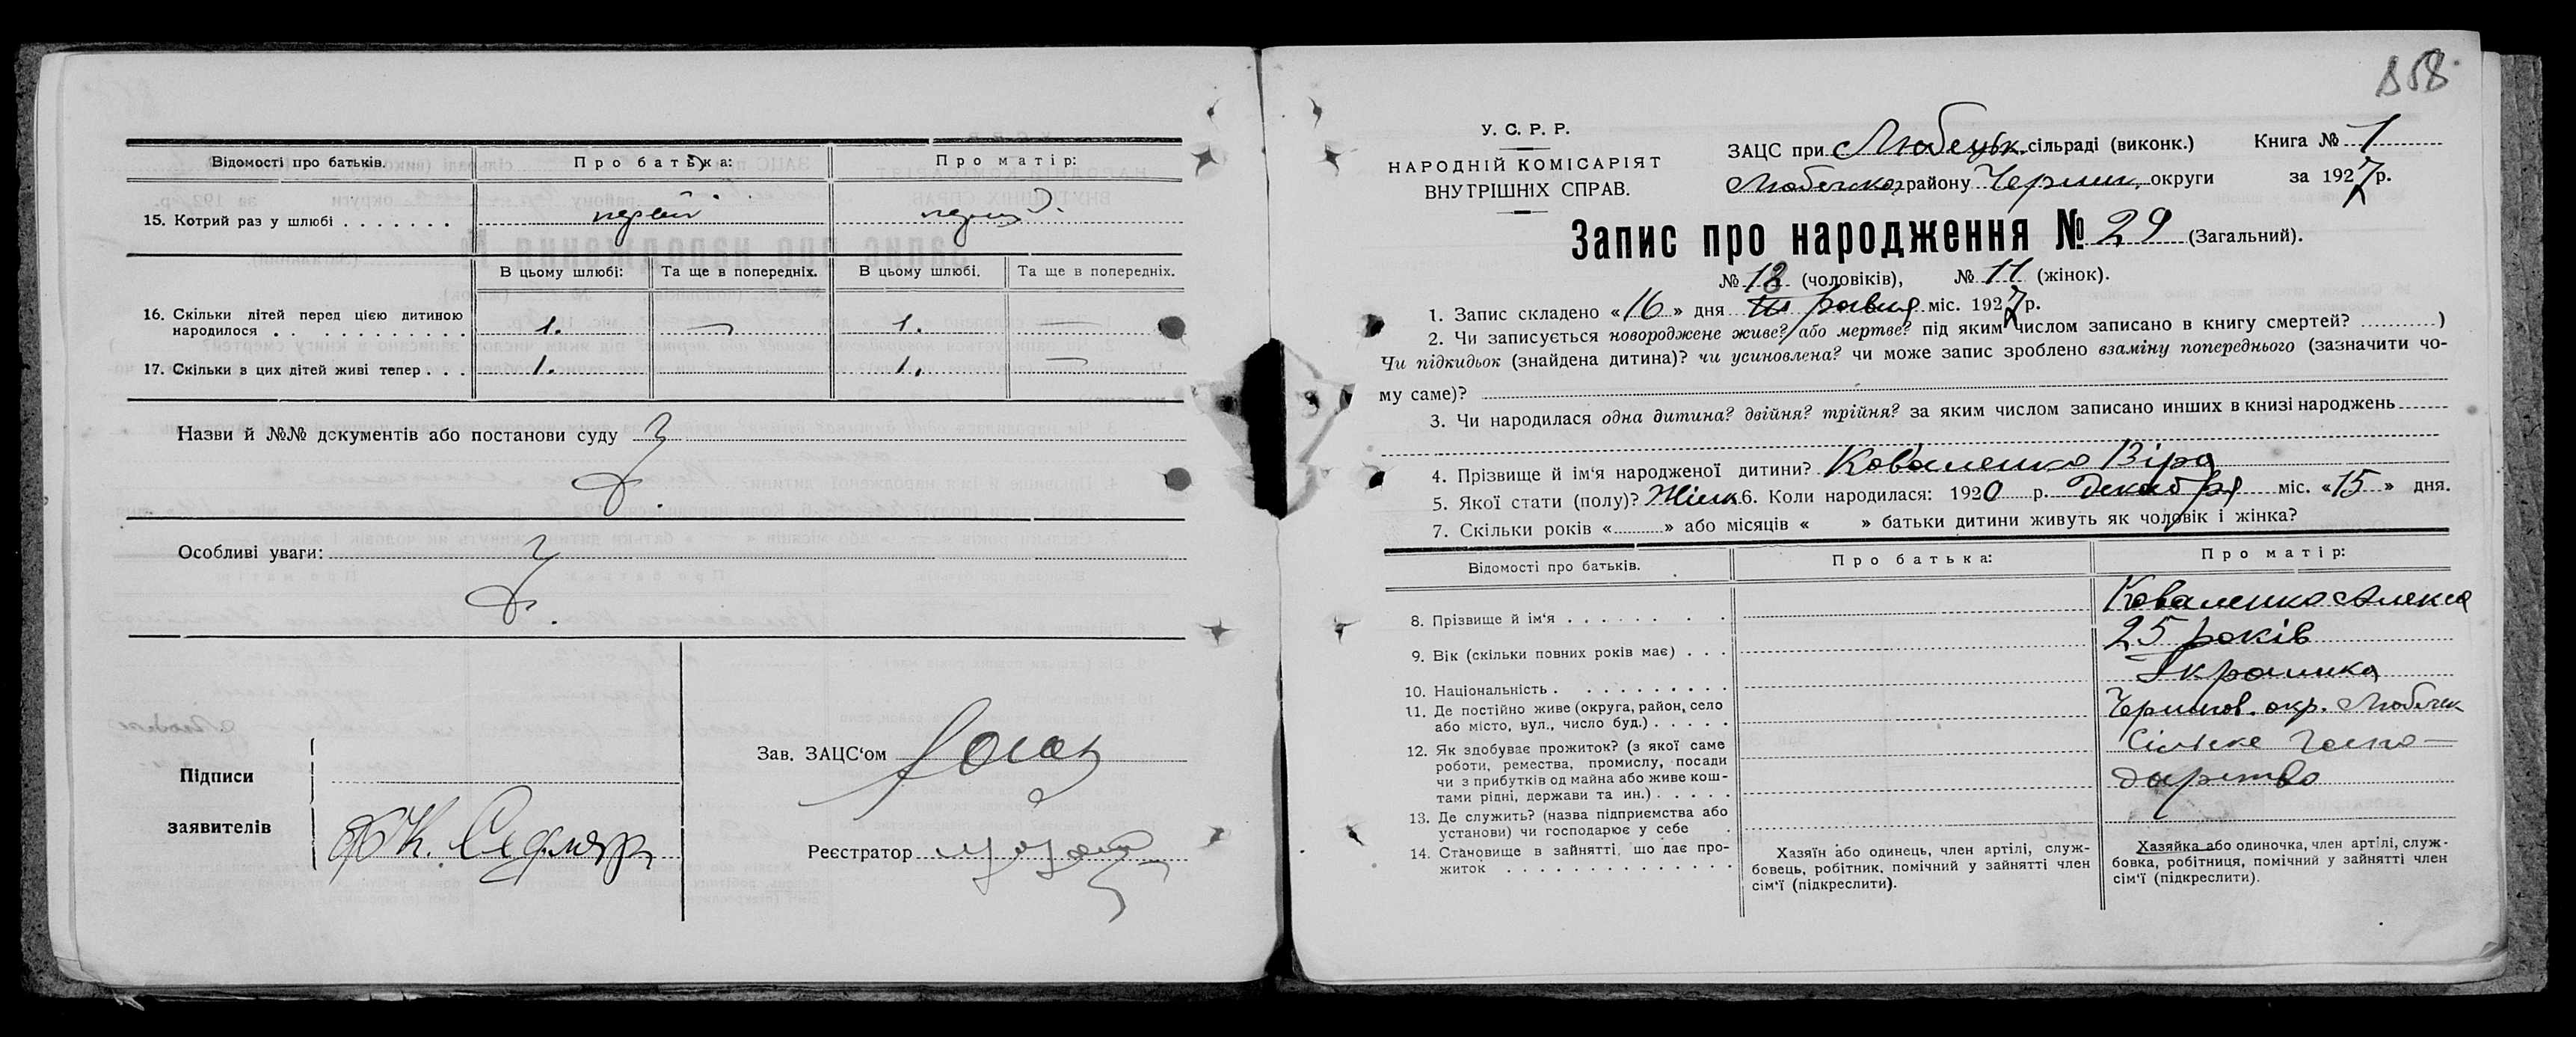 Відомості про батьків. Про батька: Про матір:
15. Котрий раз у шлюбі . . . . . . .
В цьому шлюбі: Та ще в попередніх. В цьому шлюбі. Та ще в попередніх.
16. Скільки дітей перед цією дитиною
народилося . . . . . . . . . . . 1. — 1. —
17. Скільки в цих дітей живі тепер . . . 1. 1. —
Назви й №№ документів або постанови суду
Особливі уваги:
Підписи
заявителів
Зав. ЗАЦС‘ом
Реєстратор
У. С. Р. Р.
НАРОДНІЙ КОМІСАРІЯТ
ВНУТРІШНІХ СПРАВ.
ЗАЦС при Любецьк. сільраді (виконк.) Книга № 1
району округи за 1927 р.
Запис про народження № 29 (Загальний).
№ 18 (чоловіків), № 11 (жінок).
1. Запис складено «16» дня травня міс. 1927 р.
2. Чи записується новороджене живе? або мертве? під яким числом записано в книгу смертей? ............)
Чи підкидьок (знайдена дитина)? чи усиновлена? чи може запис зроблено взаміну попереднього (зазначити чо-
му саме)?
3. Чи народилася одна дитина? двійня? трійня? за яким числом записано инших в книзі народжень
4. Прізвище й ім‘я народженої дитини? Коваленко Віра
5. Якої стати (полу)? Жінк. 6. Коли народилася: 1920 р. Декабря міс. «15» дня.
7. Скільки років «.........» або місяців « » батьки дитини живуть як чоловік і жінка?
Відомості про батьків. Про батька: Про матір:
8. Прізвище й ім‘я . . . . . . . . Коваленко
9. Вік (скільки повних років має) . . . 25 років
10. Національність . . . . . . . . . . Українка
11. Де постійно живе (округа, район, село
або місто, вул., число буд.) . . . . . Чернигов. окр. Любечек
12. Як здобуває прожиток? (з якої саме
роботи, ремества, промислу, посади
чи з прибутків од майна або живе кош-
тами рідні, держави та ин.) . . . . . Сільске госпо-
дарство
13. Де служить? (назва підприємства або
установи) чи господарює у себе .
14. Становище в зайнятті, що дає про-
житок . . . . . . . . . . . . . .
Хазяїн або одинець, член артілі, служ-
бовець, робітник, помічний у зайнятті член
сім‘ї (підкреслити).
Хазяйка або одиночка, член артілі, служ-
бовка, робітниця, помічний у зайнятті член
сім‘ї (підкреслити).